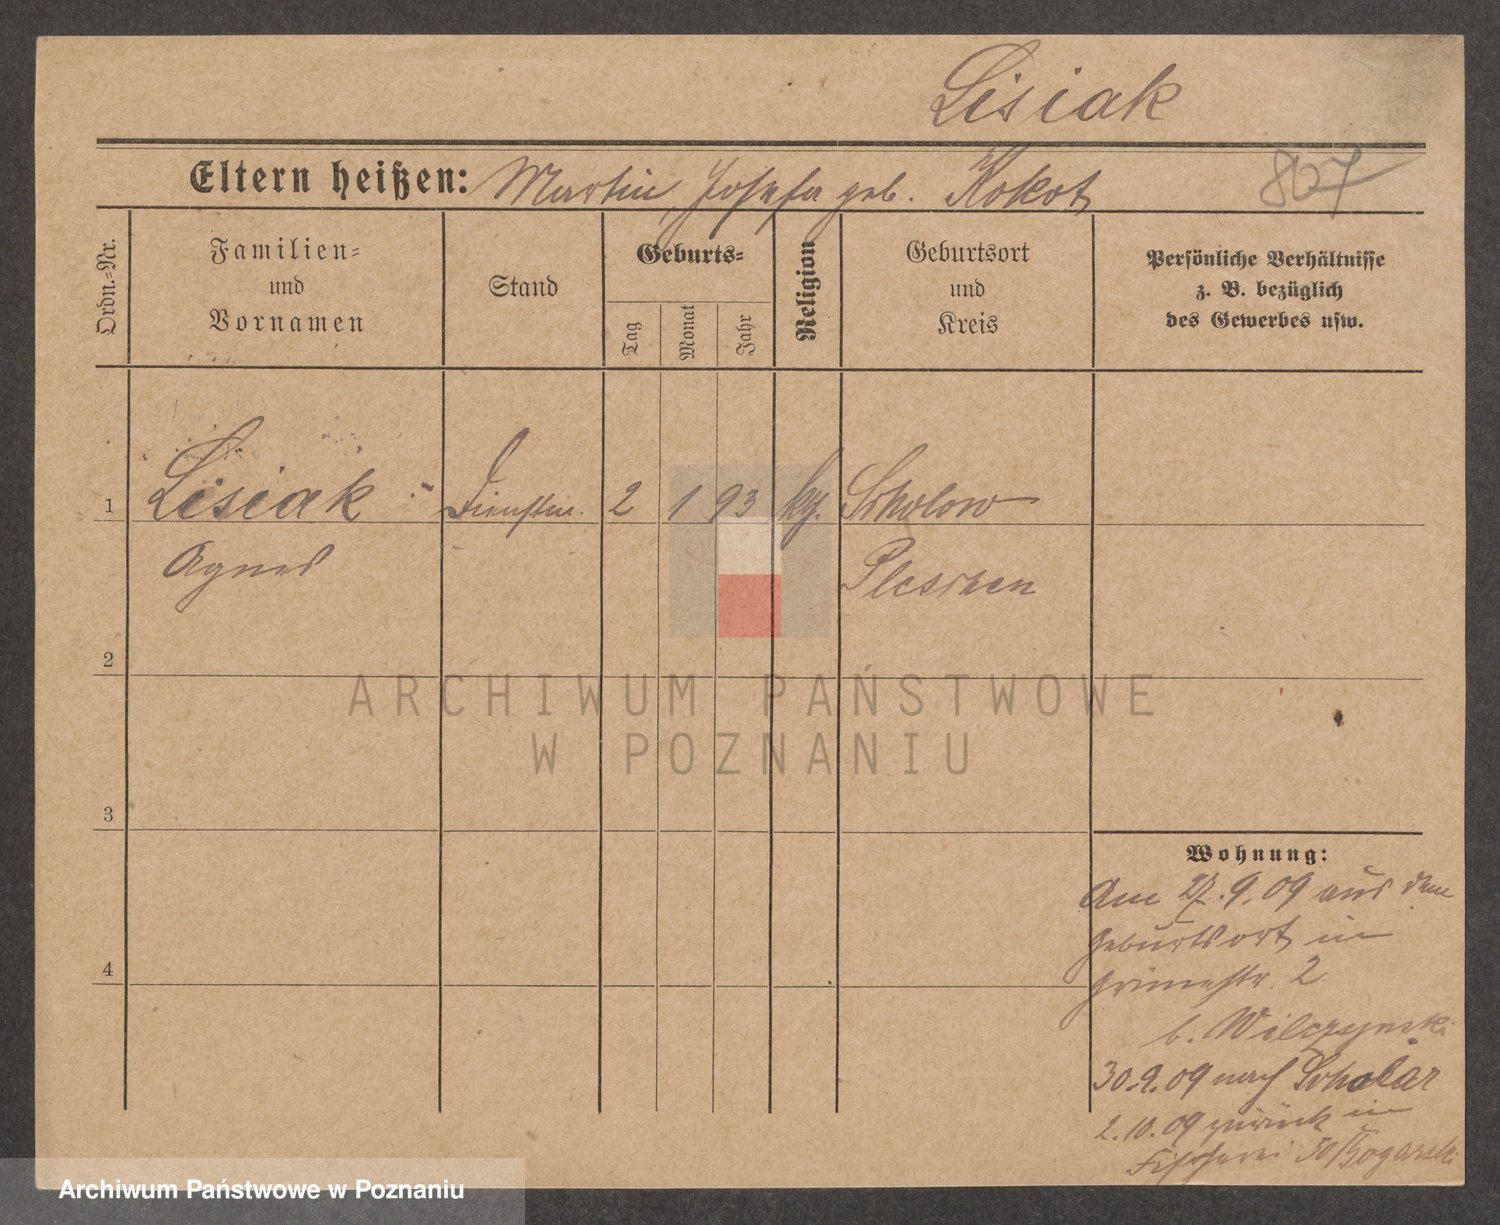 Lisiak
807
Eltern heißen: Martin, Josefa geb. Kokot
Ordn.-Nr.
Familien- und Vornamen
Stand
Geburts-
Tag
Monat
Jahr
Religion
Geburtsort und Kreis
Persönliche Verhältnisse
z. B. bezüglich
des Gewerbes usw.
1 Lisiak Dienstm. 2 1 93 kg. Sokolow
Agnes Pleschen
2
3
4
Wohnung:
Am 27.9.09 aus dem
Geburtsort in
Grünestr. 2
b. Wilczynski
30.9.09 nach
2.10.09 zurück in
Fischerei 50/Bogarski
ARCHIWUM PAŃSTWOWE
W POZNANIU
Archiwum Państwowe w Poznaniu